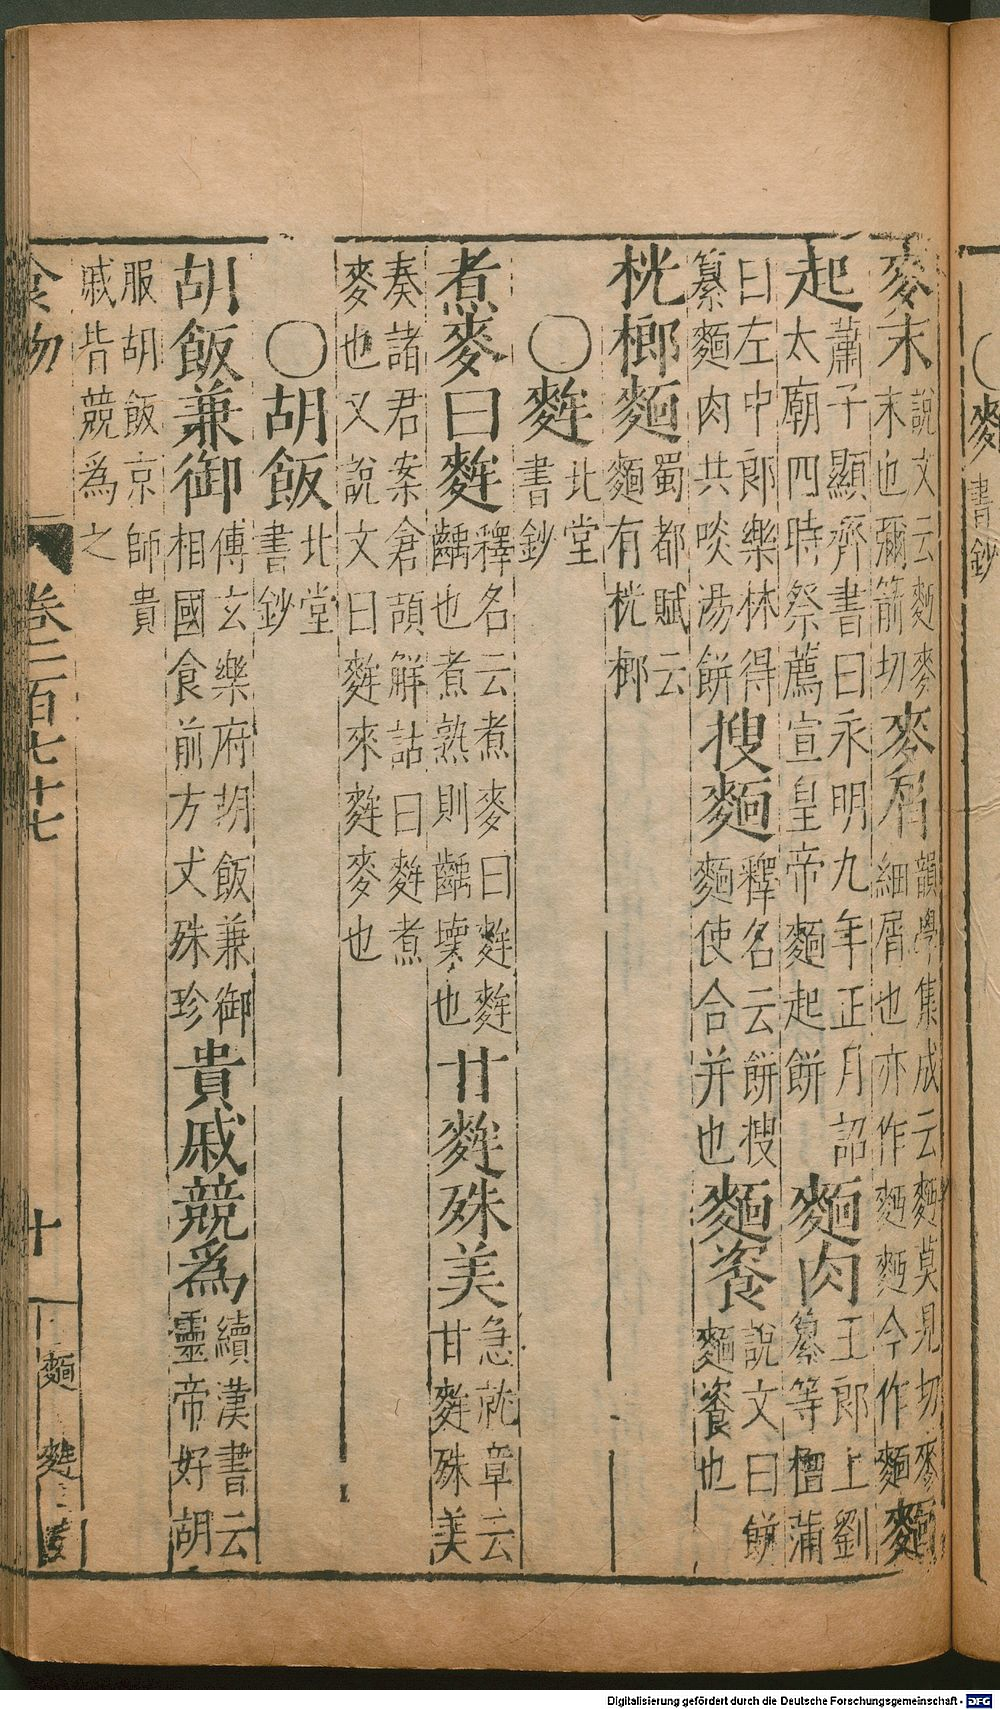 麥末 說文云麪麥末也彌箭切 麥屑 韻學集成云麪莫見切麥細屑也亦作麪麫今作麵 麵
起 蕭子顯齊書曰永明九年正月詔太廟四時祭薦宣皇帝麵起餅 麵肉 王郎上劉纂等樗蒲
曰左中郎樂林得纂麵肉共啖湯餅 搜麵 釋名云餅搜麵使合并也 麵餈 說文曰餅麵餈也
桄榔麵 蜀都賦云麵有桄榔
〇䴱 北堂書鈔
煮麥曰䴱 釋名云煮麥曰䴱䴱齲也煮熟則齲壞也 甘䴱殊美 急就章云甘䴱殊美
奏諸君案倉頡解詁曰䴱煮麥也又說文曰䴱來䴱麥也
〇胡飯 北堂書鈔
胡飯兼御 傅玄樂府胡飯兼御相國食前方丈殊珍 貴戚競為 續漢書云靈帝好胡
服胡飯京師貴戚皆競為之
食物 卷二百七十七 十 麵 䴱
麥 書鈔
Digitalisierung gefördert durch die Deutsche Forschungsgemeinschaft - DFG